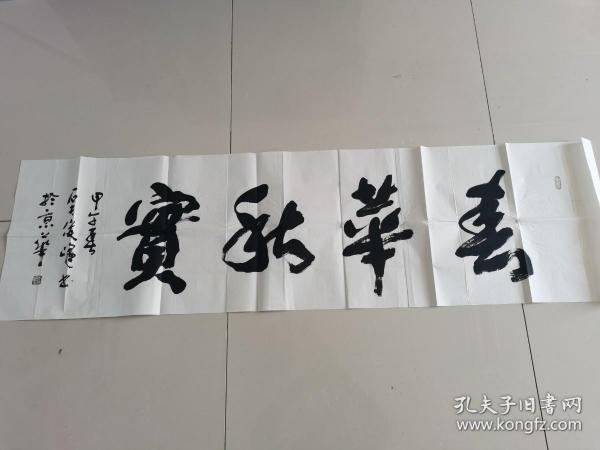 春華秋實
甲午春
於京華
孔夫子旧书网
www.kongfz.com